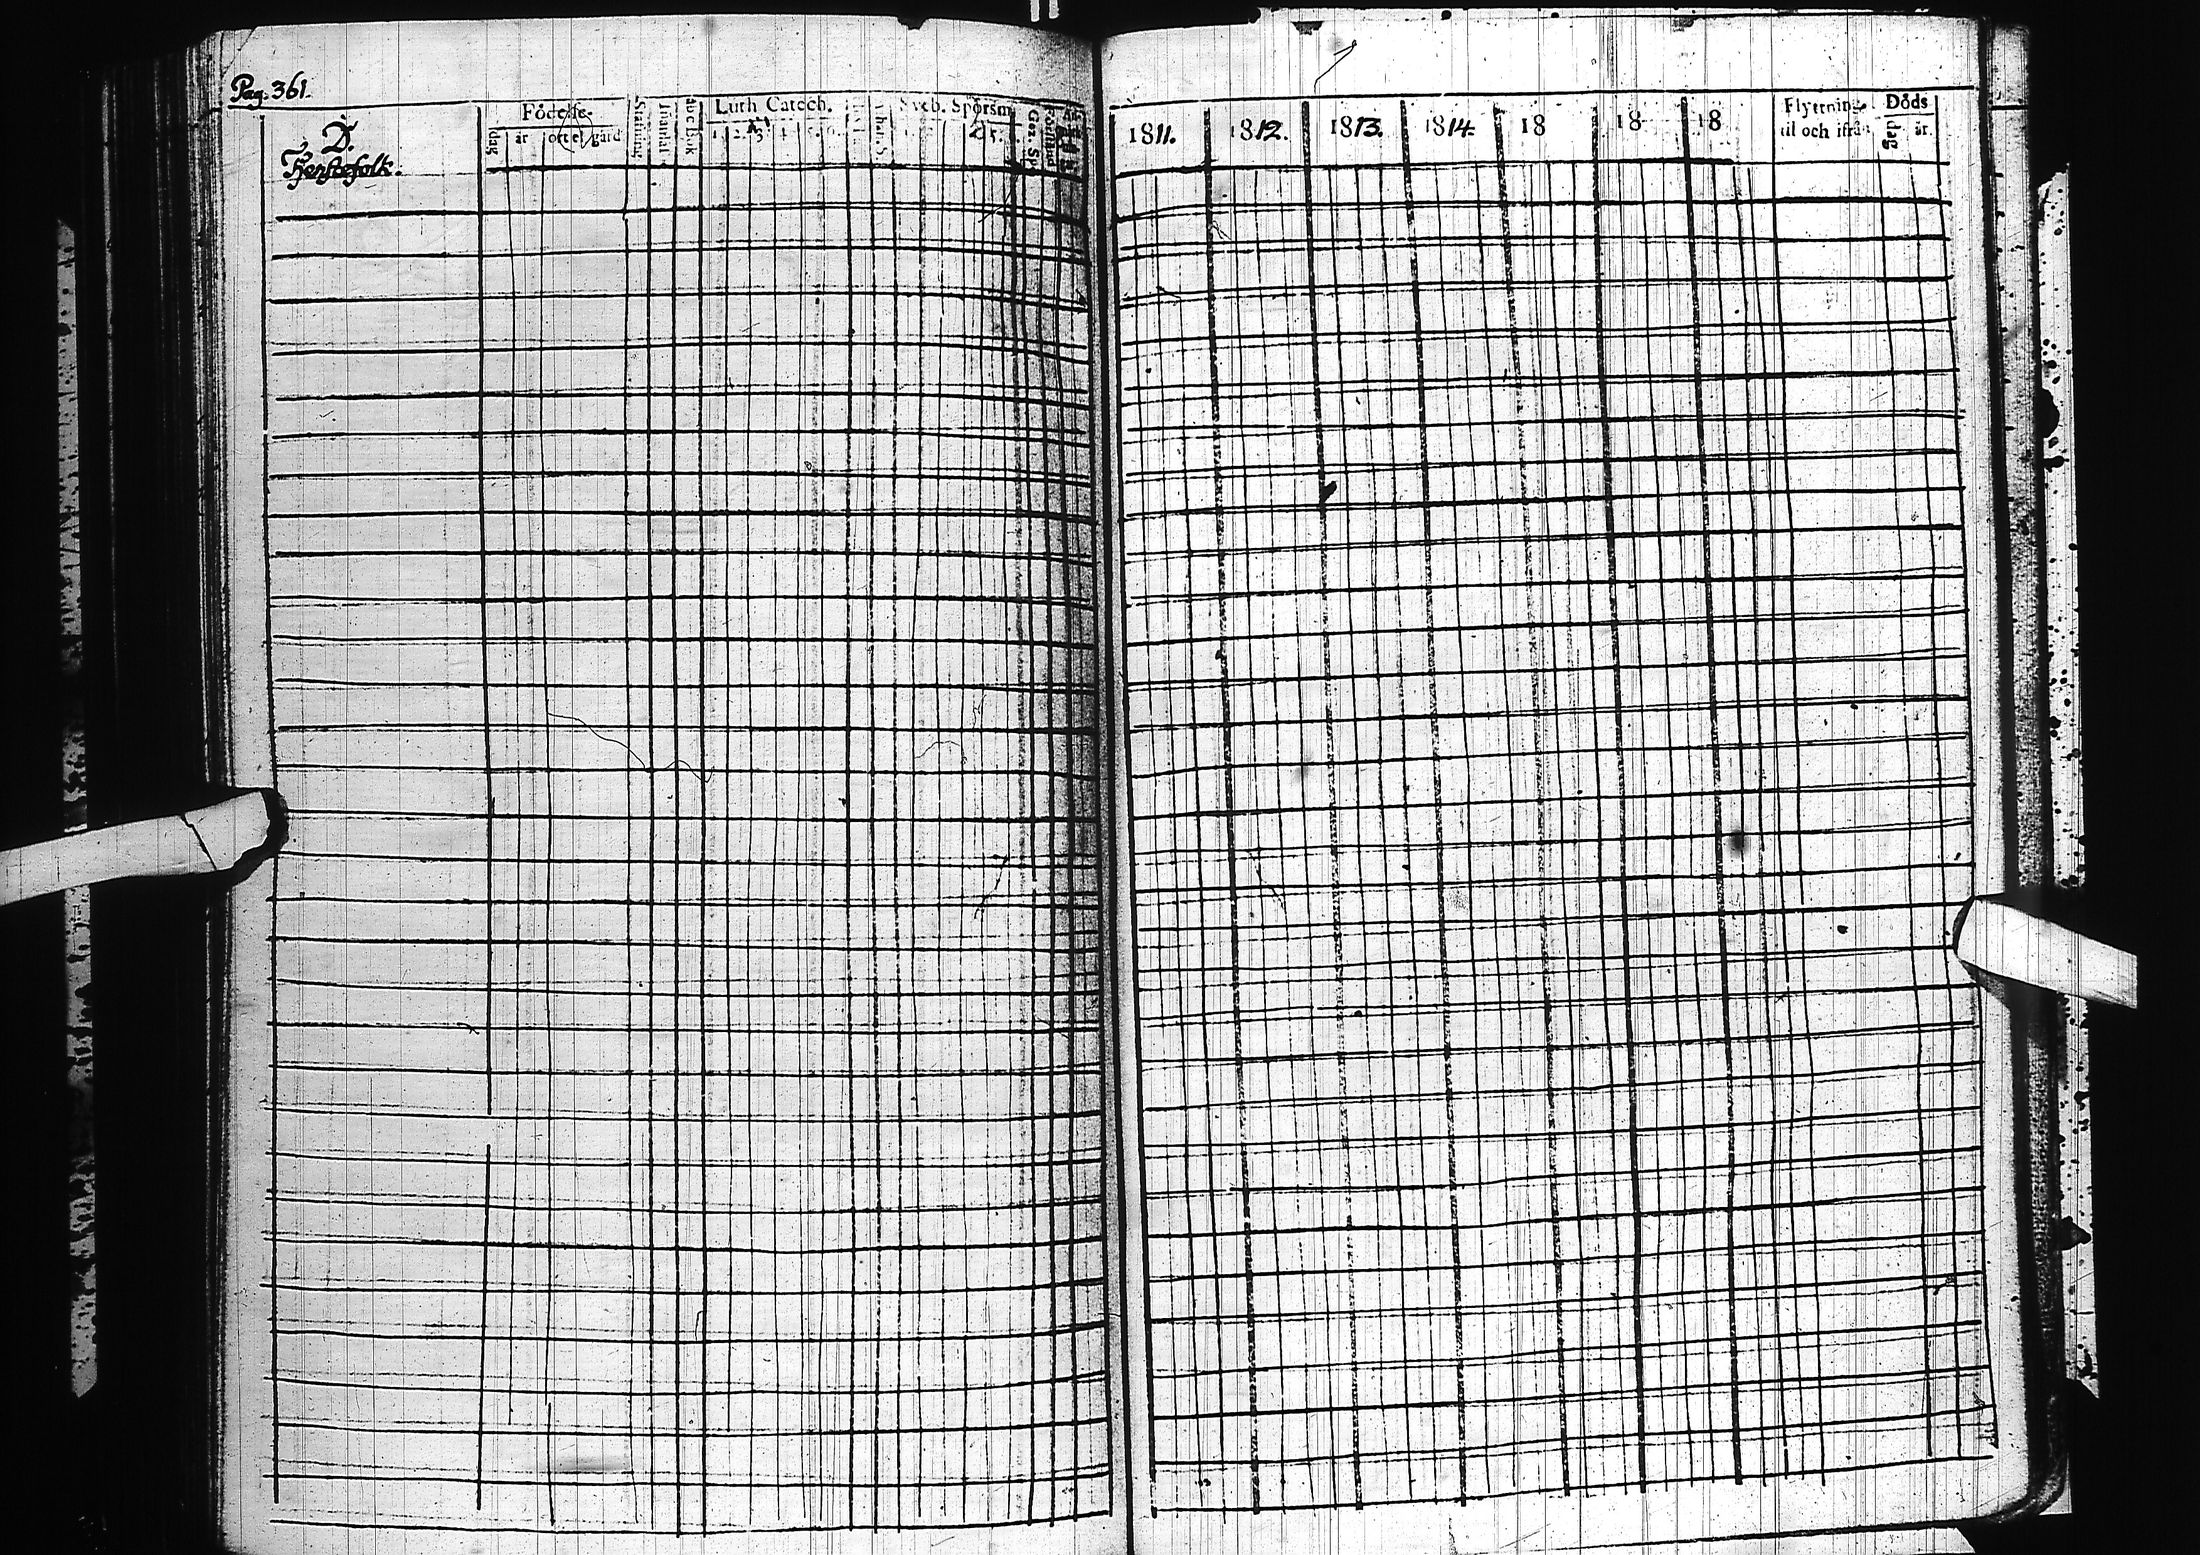 Pag. 361.
D.
Tjenstefolk.
Födelse-
dag år ort el. gård
Stafning
Innantil
abc Bok
Luth Catech.
1. 2. 3. 4. 5.
Sveb. Spörsm.
4. 5.
1811. 1812. 1813. 1814. 18 18 18
Flyttning
til och ifrån
Döds
dag år.